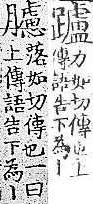 力如切傳也上
傳語告下為丨
臚落如切傳也一曰
上傳語告下為丨